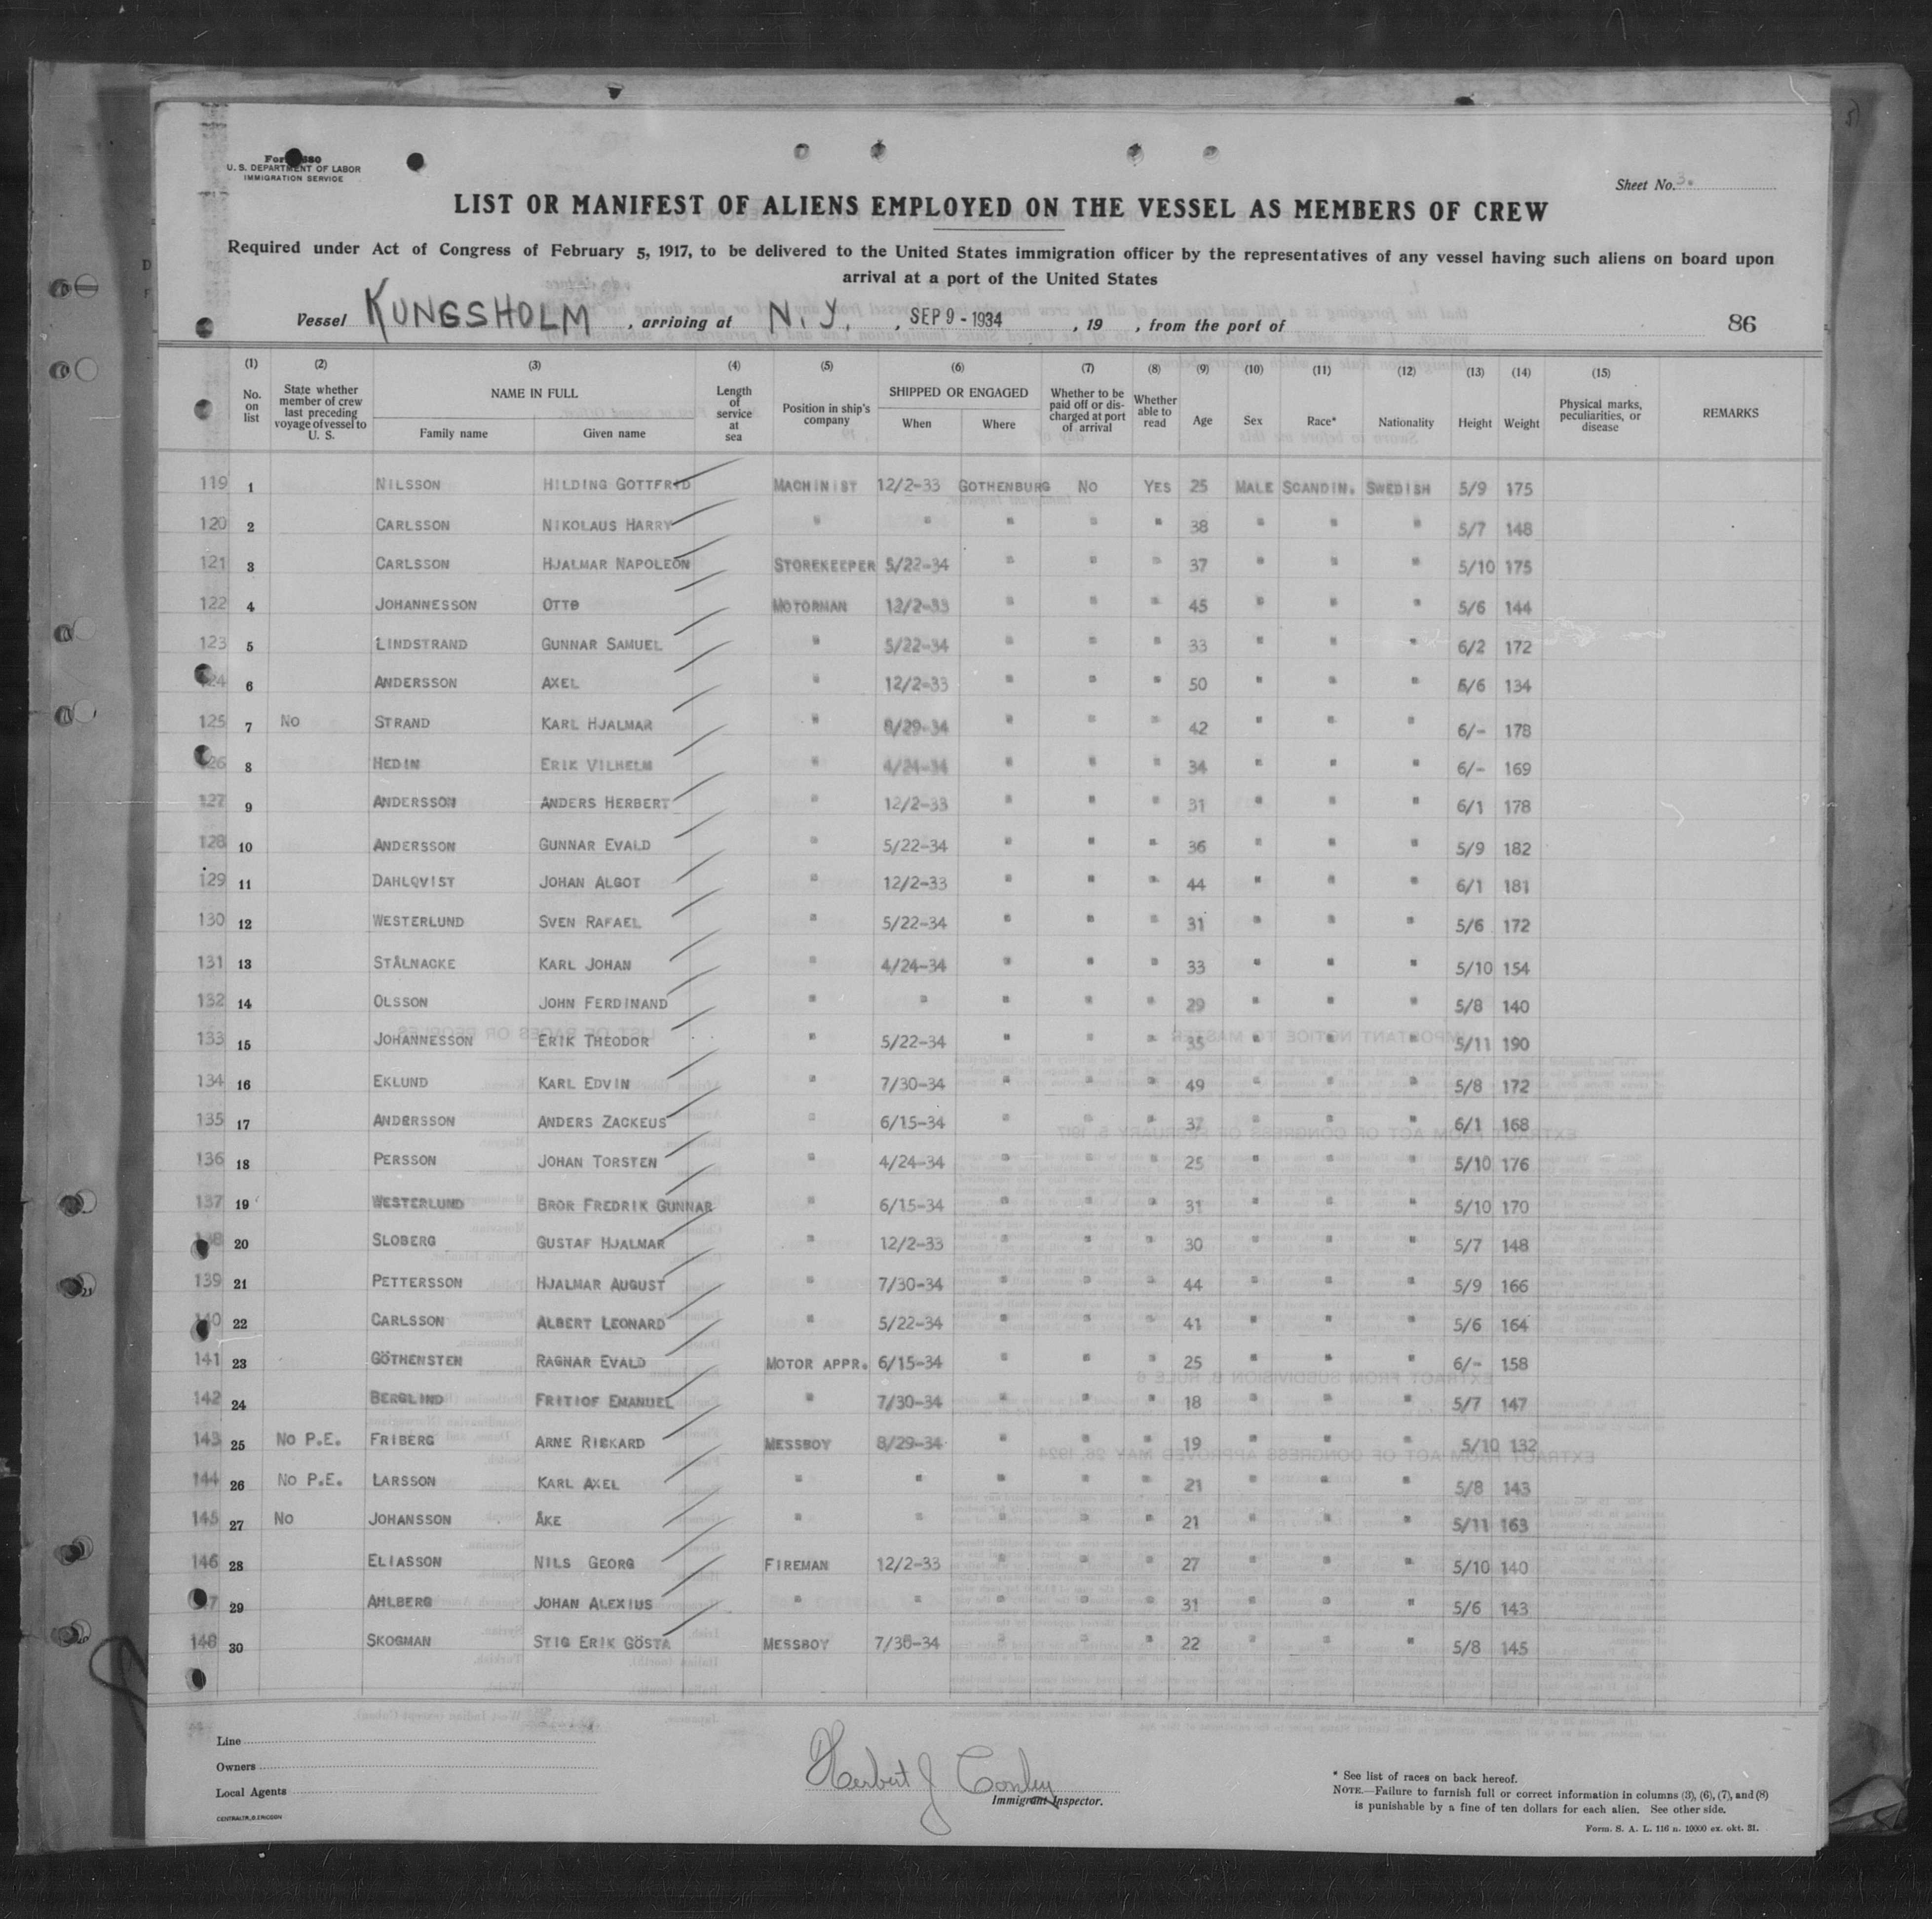 U. S. DEPARTMENT OF LABOR
IMMIGRATION SERVICE
Sheet No. 3.
LIST OR MANIFEST OF ALIENS EMPLOYED ON THE VESSEL AS MEMBERS OF CREW
Required under Act of Congress of February 5, 1917, to be delivered to the United States immigration officer by the representatives of any vessel having such aliens on board upon
arrival at a port of the United States
Vessel KUNGSHOLM , arriving at N. Y. , SEP 9 - 1934 , 19 , from the port of 86
(1) No. on list (2) State whether member of crew last preceding voyage of vessel to U. S. (3) NAME IN FULL Family name Given name (4) Length of service at sea (5) Position in ship's company (6) SHIPPED OR ENGAGED When Where (7) Whether to be paid off or discharged at port of arrival (8) Whether able to read (9) Age (10) Sex (11) Race* (12) Nationality (13) Height (14) Weight (15) Physical marks, peculiarities, or disease REMARKS
119 1 NILSSON HILDING GOTTFRID MACHINIST 12/2-33 GOTHENBURG NO YES 25 MALE SCANDIN. SWEDISH 5/9 175
120 2 CARLSSON NIKOLAUS HARRY " " " " " 38 " " " 5/7 148
121 3 CARLSSON HJALMAR NAPOLEON STOREKEEPER 5/22-34 " " " 37 " " " 5/10 175
122 4 JOHANNESSON OTTO MOTORMAN 12/2-33 " " " 45 " " " 5/6 144
123 5 LINDSTRAND GUNNAR SAMUEL " 5/22-34 " " " 33 " " " 6/2 172
124 6 ANDERSSON AXEL " 12/2-33 " " " 50 " " " 5/6 134
125 7 NO STRAND KARL HJALMAR " 8/29-34 " " " 42 " " " 6/- 178
126 8 HEDIN ERIK VILHELM " 4/24-34 " " " 34 " " " 6/- 169
127 9 ANDERSSON ANDERS HERBERT " 12/2-33 " " " 31 " " " 6/1 178
128 10 ANDERSSON GUNNAR EVALD " 5/22-34 " " " 36 " " " 5/9 182
129 11 DAHLQVIST JOHAN ALGOT " 12/2-33 " " " 44 " " " 6/1 181
130 12 WESTERLUND SVEN RAFAEL " 5/22-34 " " " 31 " " " 5/6 172
131 13 STÅLNACKE KARL JOHAN " 4/24-34 " " " 33 " " " 5/10 154
132 14 OLSSON JOHN FERDINAND " " " " " 29 " " " 5/8 140
133 15 JOHANNESSON ERIK THEODOR " 5/22-34 " " " 35 " " " 5/11 190
134 16 EKLUND KARL EDVIN " 7/30-34 " " " 49 " " " 5/8 172
135 17 ANDERSSON ANDERS ZACKEUS " 6/15-34 " " " 37 " " " 6/1 168
136 18 PERSSON JOHAN TORSTEN " 4/24-34 " " " 25 " " " 5/10 176
137 19 WESTERLUND BROR FREDRIK GUNNAR " 6/15-34 " " " 31 " " " 5/10 170
138 20 SLOBERG GUSTAF HJALMAR " 12/2-33 " " " 30 " " " 5/7 148
139 21 PETTERSSON HJALMAR AUGUST " 7/30-34 " " " 44 " " " 5/9 166
140 22 CARLSSON ALBERT LEONARD " 5/22-34 " " " 41 " " " 5/6 164
141 23 GÖTHENSTEN RAGNAR EVALD MOTOR APPR. 6/15-34 " " " 25 " " " 6/- 158
142 24 BERGLIND FRITIOF EMANUEL " 7/30-34 " " " 18 " " " 5/7 147
143 25 NO P.E. FRIBERG ARNE RICKARD MESSBOY 8/29-34 " " " 19 " " " 5/10 132
144 26 NO P.E. LARSSON KARL AXEL " " " " " 21 " " " 5/8 143
145 27 NO JOHANSSON ÅKE " " " " " 21 " " " 5/11 163
146 28 ELIASSON NILS GEORG FIREMAN 12/2-33 " " " 27 " " " 5/10 140
147 29 AHLBERG JOHAN ALEXIUS " " " " " 31 " " " 5/6 143
148 30 SKOGMAN STIG ERIK GÖSTA MESSBOY 7/30-34 " " " 22 " " " 5/8 145
Line
Owners
Local Agents
Herbert J Conley
Immigrant Inspector.
* See list of races on back hereof.
NOTE.—Failure to furnish full or correct information in columns (3), (6), (7), and (8)
is punishable by a fine of ten dollars for each alien. See other side.
Form. S. A. L. 116 n. 10000 ex. okt. 31.